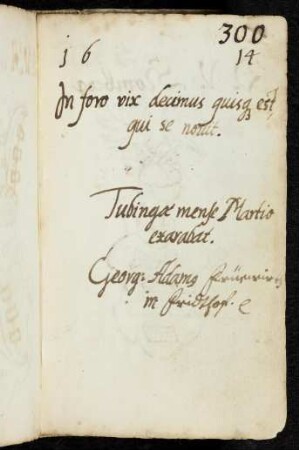 300
16 14
In foro vix decimus quisq est,
qui se novit.
Tubingæ mense Martio
exarabat.
Georg: Adamg
in Fridthof.